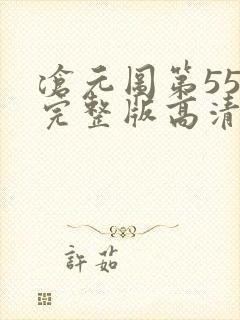 滄元圖第55
完整版高清
許茹